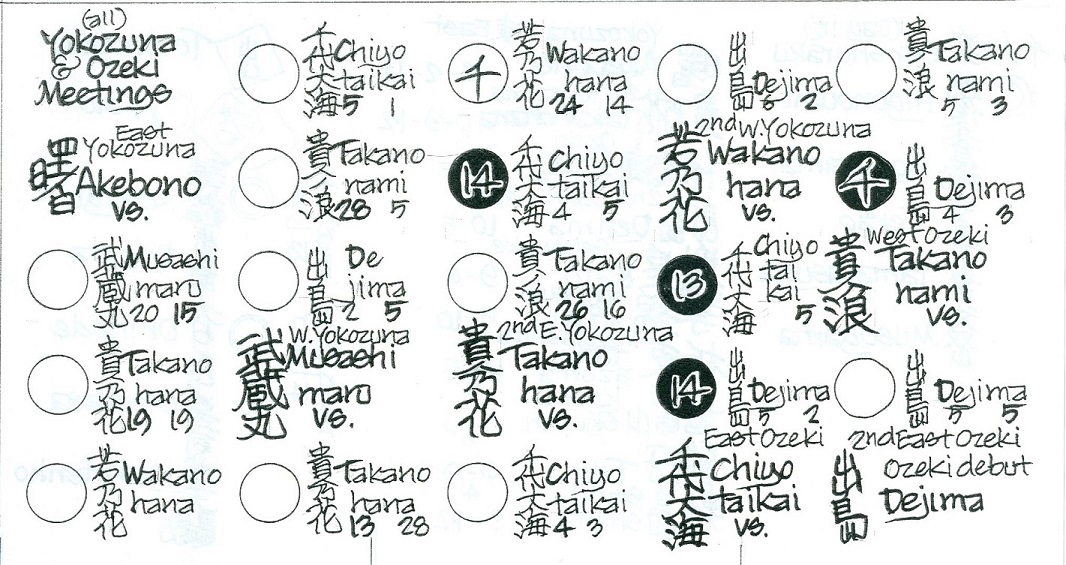 (all)
Yokozuna
& Ozeki
Meetings
East
Yokozuna
曙
Akebono
vs.
武蔵丸
Musashi
maru
20 15
貴乃花
Takano
hana
19 19
若乃花
Wakano
hana
千代大海
Chiyo
taikai
5 1
貴ノ浪
Takano
nami
28 5
出島
De
jima
2 5
W. Yokozuna
武蔵丸
Musashi
maru
vs.
貴乃花
Takano
hana
13 28
千
若乃花
Wakano
hana
24 14
14
千代大海
Chiyo
taikai
4 5
貴ノ浪
Takano
nami
26 16
2nd E. Yokozuna
貴乃花
Takano
hana
vs.
千代大海
Chiyo
taikai
4 3
出島
Dejima
2
2nd W. Yokozuna
若乃花
Wakano
hana
vs.
13
千代大海
Chiyo
tai
kai
5
14
出島
Dejima
5 2
East Ozeki
千代大海
Chiyo
taikai
vs.
貴ノ浪
Takano
nami
5 3
千
出島
Dejima
4 3
West Ozeki
貴ノ浪
Takano
nami
vs.
出島
Dejima
5 5
2nd East Ozeki
Ozeki debut
出島
Dejima